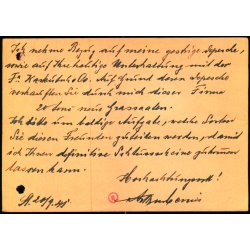 Ich nehme Bezug auf meine gestrige Depesche
sowie auf Ihre heutige Unterhaltung mit der
Fa. & Co. Auf Grund deren Depesche
verkauften Sie durch mich dieser Firma
20 tons neue Grassaaten.
Ich bitte um baldige Aufgabe, welche Sorten
Sie diesen Freunden zuteilen werden, damit
ich Ihnen definitive Schlussscheine zukommen
lassen kann.
Hochachtungsvoll!